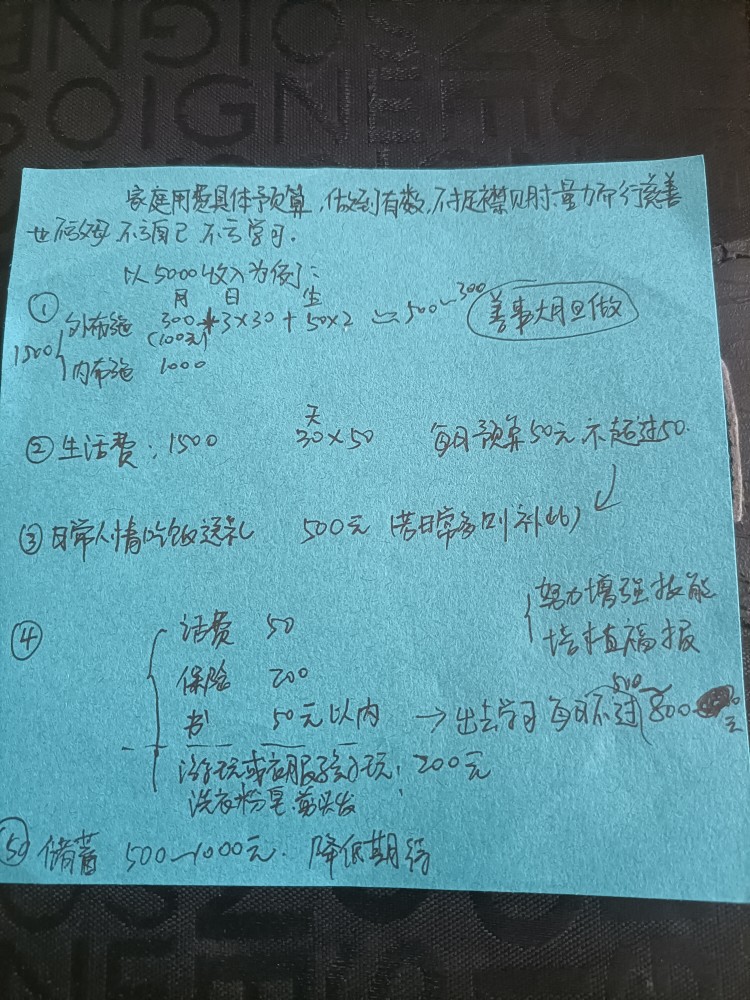 SOIGNE
家庭用费具体预算,做到有数,不捉襟见肘.量力而行慈善
也 父母 不亏自己 不亏学习.
以5000收入为例:
月 日 生
① 外布施 300 3×30 + 50×2 ≈ 500~300 善事大胆做
1500 (100元)
内布施 1000
天
② 生活费:1500 30×50 每日预算50元 不超过50.
③ 日常人情吃饭送礼 500元 (若日常多则补贴)
努力增强技能
④ 话费 50
培植福报
保险 200
500~
书 50元以内 → 出去学习 每月不过800 元
游玩或衣服 玩:200元
洗衣粉皂.剪头发
⑤ 储蓄 500~1000元. 降低期待